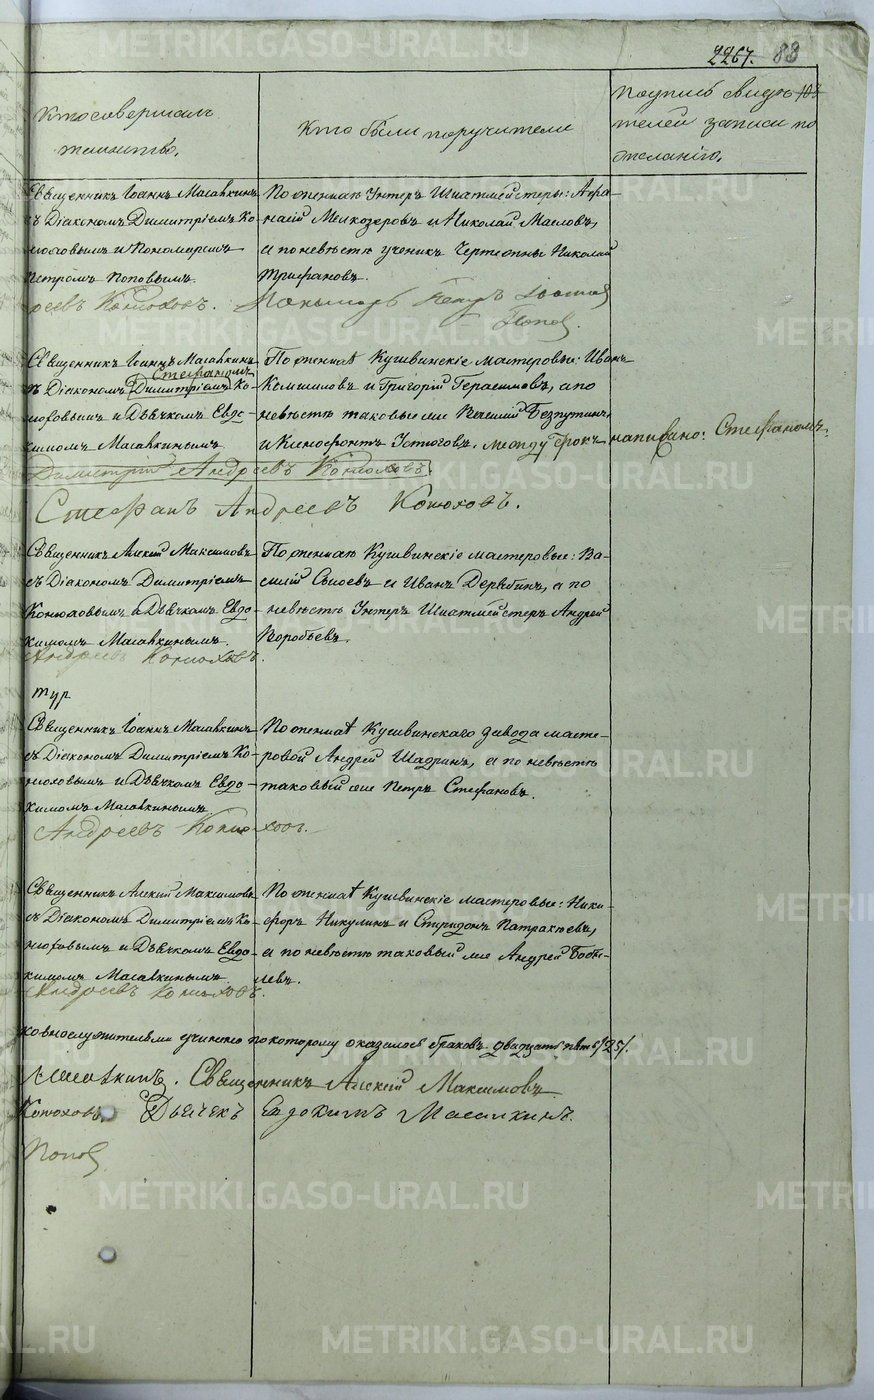 2267. 83
Кто совершалъ
таинство.
Кто были поручители
Подпись свидѣ-
телей записи по
желанію.
Священникъ Іоаннъ Масалкинъ
съ Діакономъ Димитріемъ Ко-
нюховымъ и Пономаремъ
Петромъ Поповымъ
Конюховъ.
По женихѣ Унтеръ Шихтмейстеры: Афа-
насій Мелкозеровъ и Николай Масловъ,
а по невѣстѣ ученикъ Чертежны Николай
Трифановъ.
Пономарь Петръ
Поповъ
Священникъ Іоаннъ Масалкинъ
Стефаномъ
съ Діакономъ Димитріемъ Ко-
нюховымъ и Дьячкомъ Евдо-
кимомъ Масалкинымъ
Димитрій Андреевъ Конюховъ.
Стефанъ Андреевъ Конюховъ.
По женихѣ Кушвинскіе мастеровые: Иванъ
и Григорій Герасимовъ, а по
невѣстѣ таковые же Василій Безпутинъ,
и Ксенофонтъ Устюговъ. Между строкъ написано: Стефаномъ.
Священникъ Алексій Максимовъ
съ Діакономъ Димитріемъ
Конюховымъ и Дьячкомъ Евдо-
кимомъ Масалкинымъ.
Андреевъ Конюховъ.
По женихѣ Кушвинскіе мастеровые: Ва-
силій Сысоевъ и Иванъ Дерябинъ, а по
невѣстѣ Унтеръ Шихтмейстеръ Андрей
Воробьевъ.
Священникъ Іоаннъ Масалкинъ
съ Діакономъ Димитріемъ Ко-
нюховымъ и Дьячкомъ Евдо-
кимомъ Масалкинымъ
Андреевъ Конюховъ.
По женихѣ Кушвинскаго завода масте-
ровой Андрей Шадринъ, а по невѣстѣ
таковый же Петръ Стефановъ.
Священникъ Алексій Максимовъ
съ Діакономъ Димитріемъ Ко-
нюховымъ и Дьячкомъ Евдо-
кимомъ Масалкинымъ
Андреевъ Конюховъ.
По женихѣ Кушвинскіе мастеровые: Ники-
форъ Никулинъ и Спиридонъ Патракѣевъ,
а по невѣстѣ таковый же Андрей Бобы-
левъ.
ковнослужительми учинено по которому оказалось браковъ двадцать пять /25/.
Масалкинъ. Священникъ Алексій Максимовъ
Конюховъ. Дьячекъ Евдокимъ Масалкинъ.
Поповъ
METRIKI.GASO-URAL.RU